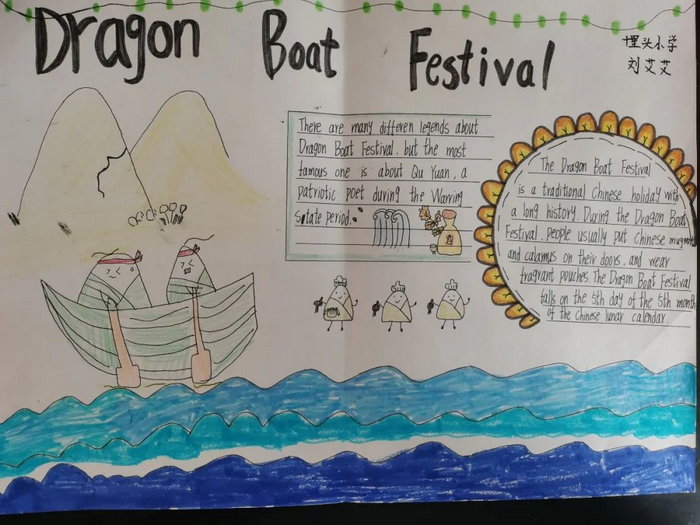 Dragon Boat Festival
埋头小学
刘艾艾
There are many differen legends about
Dragon Boat Festival. but the most
famous one is about Qu Yuan, a
patriotic poet during the Warring
State period.
The Dragon Boat Festival
is a traditional Chinese holiday with
a long history. During the Dragon Boat
Festival people usually put Chinese mugwort
and calamus on their doors, and wear
fragrant pouches. The Dragon Boat Festival
falls on the 5th day of the 5th month
of the Chinese lunar calendar.